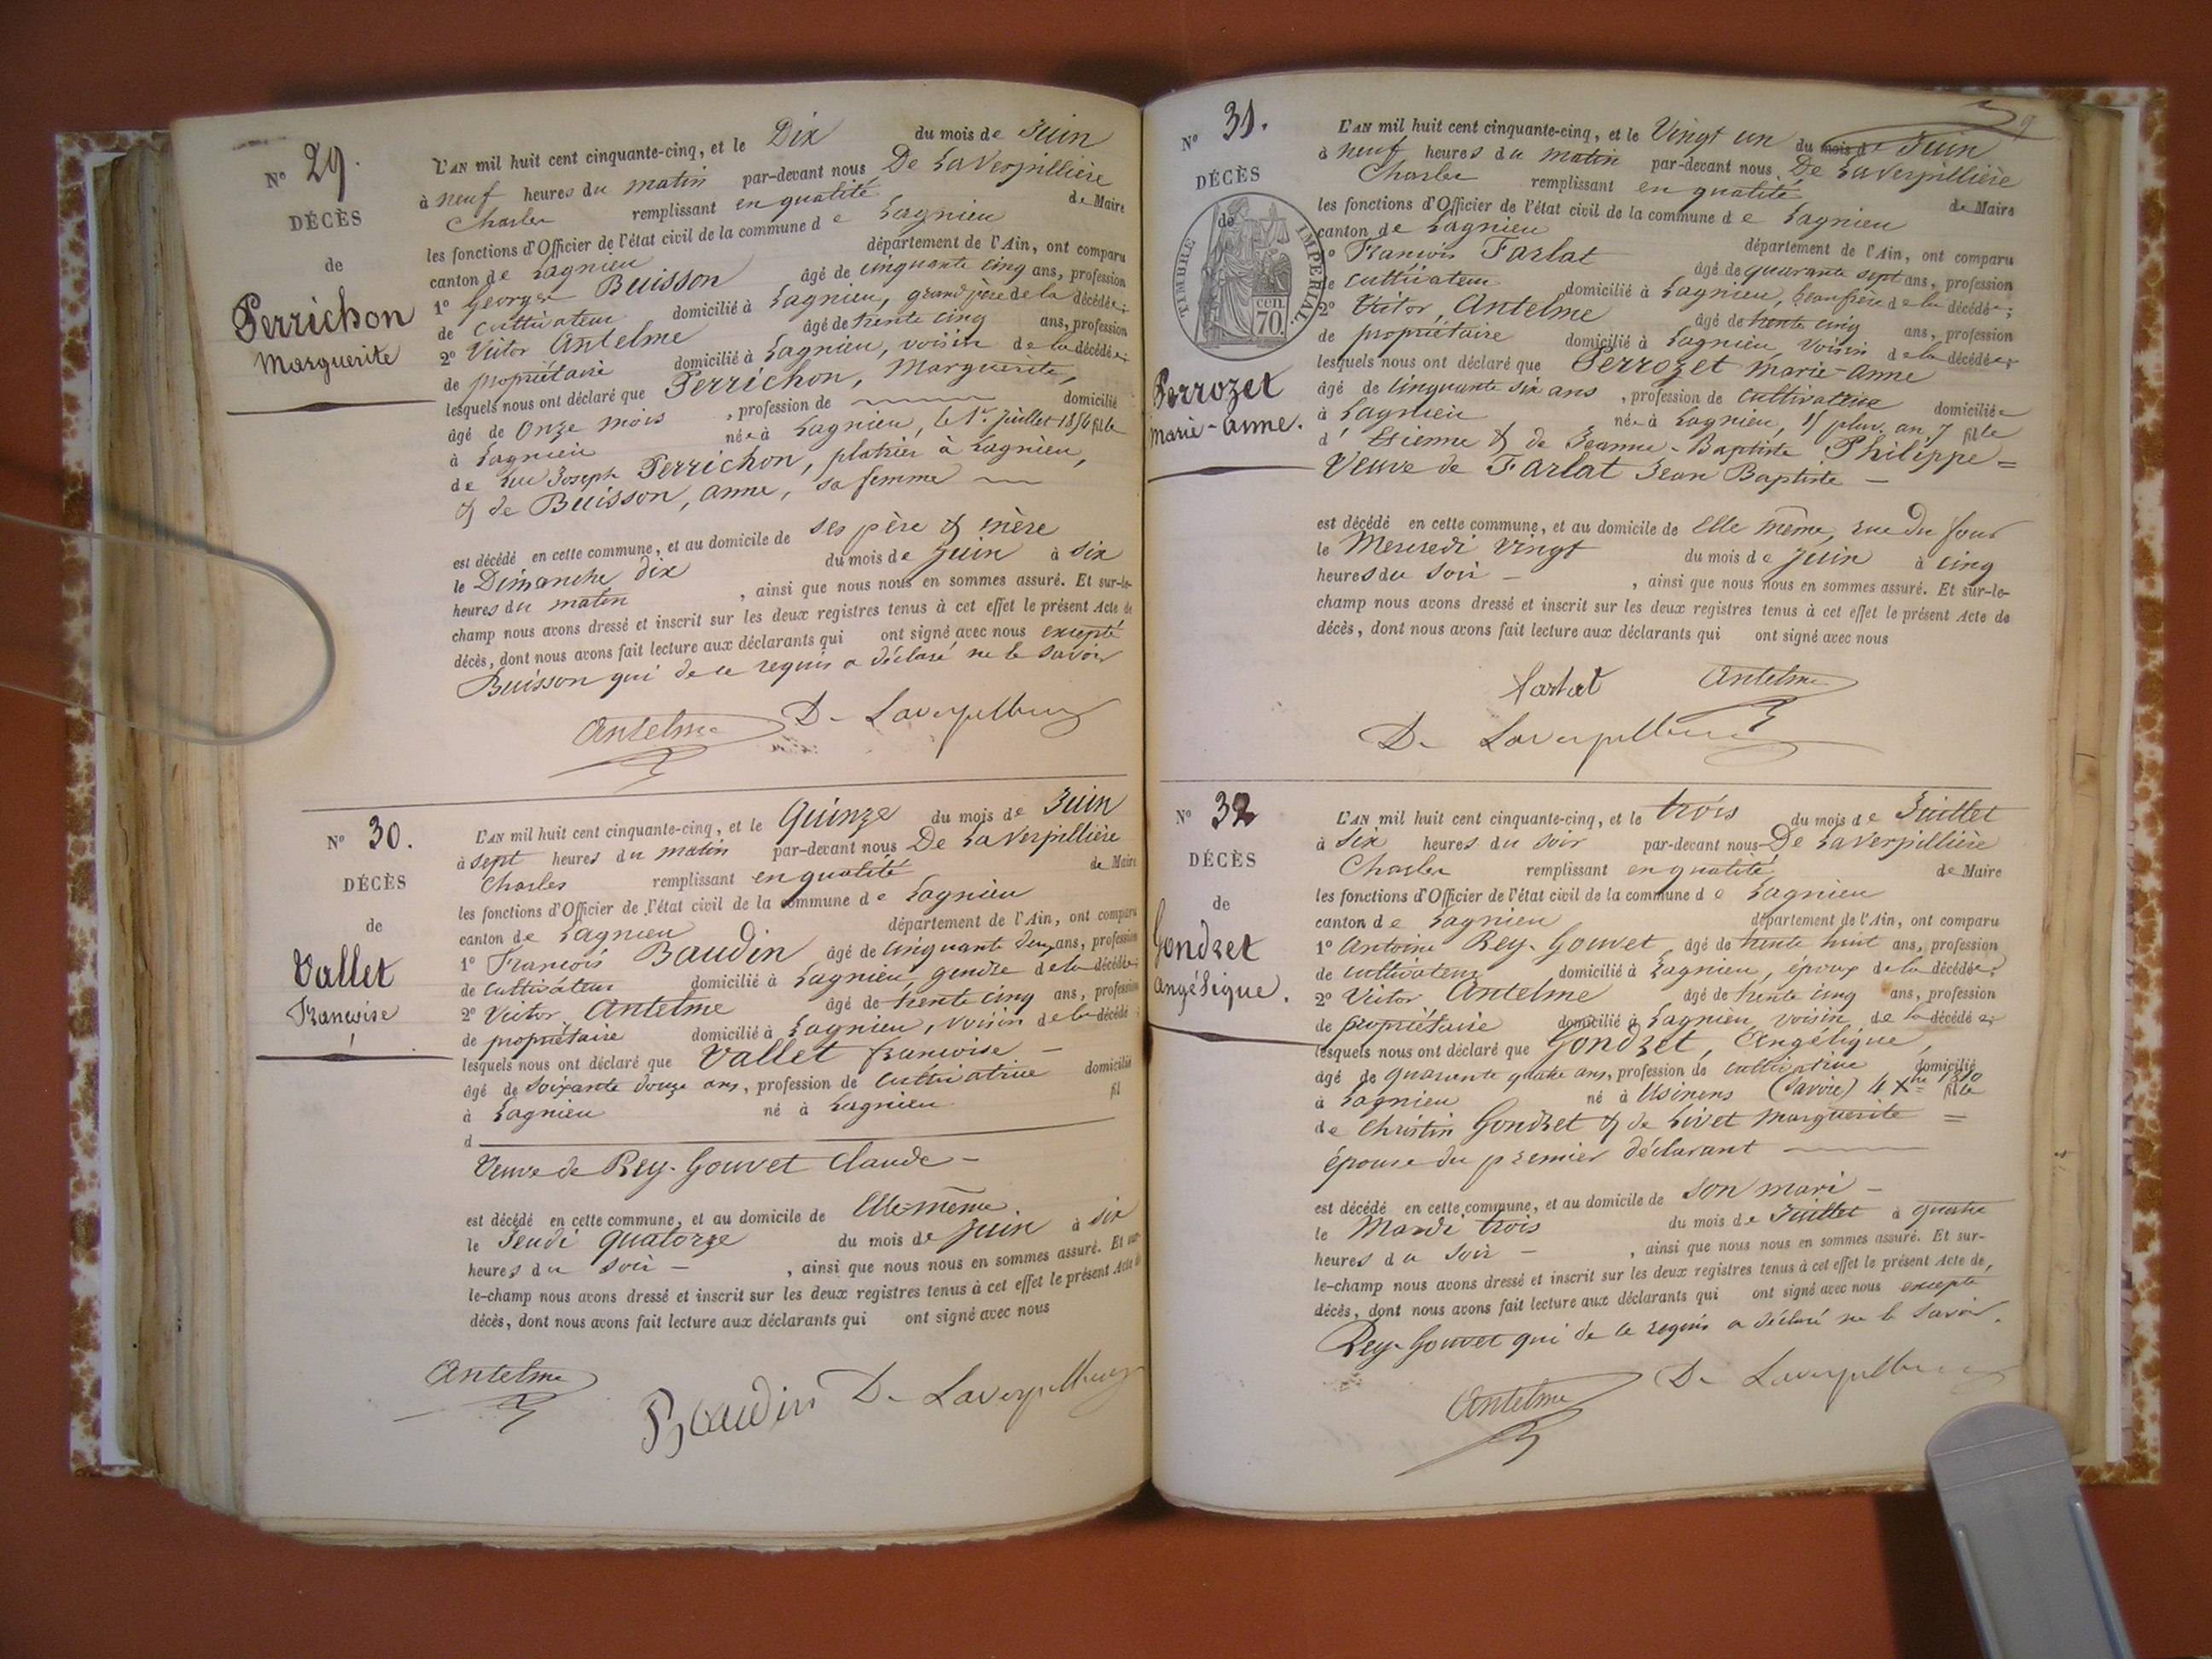 N° 29.
DÉCÈS
de
Perrichon
Marguerite
L'AN mil huit cent cinquante-cinq, et le Dix du mois de Juin
à neuf heures du matin par-devant nous De LaVerpillière
Charles remplissant en qualité de Maire
les fonctions d'Officier de l'état civil de la commune de Lagnieu
canton de Lagnieu département de l'Ain, ont comparu
1° George Buisson âgé de cinquante cinq ans, profession
de cultivateur domicilié à Lagnieu, grand père de la décédée;
2° Victor Antelme âgé de trente cinq ans, profession
de propriétaire domicilié à Lagnieu, voisin de la décédée;
lesquels nous ont déclaré que Perrichon, Marguerite,
âgé de onze mois, profession de domicilié
à Lagnieu née à Lagnieu, le 1r. Juillet 1854 fille
de Luc Joseph Perrichon, platrier à Lagnieu,
& de Buisson, Anne, sa femme
est décédé en cette commune, et au domicile de ses père & mère
le Dimanche dix du mois de Juin à six
heures du matin, ainsi que nous nous en sommes assuré. Et sur-le-
champ nous avons dressé et inscrit sur les deux registres tenus à cet effet le présent Acte de
décès, dont nous avons fait lecture aux déclarants qui ont signé avec nous excepté
Buisson qui de ce requis a déclaré ne le savoir
Antelme De Laverpilliere
N° 30.
DÉCÈS
de
Vallet
Françoise
L'AN mil huit cent cinquante-cinq, et le Quinze du mois de Juin
à sept heures du matin par-devant nous De LaVerpillière
Charles remplissant en qualité de Maire
les fonctions d'Officier de l'état civil de la commune de Lagnieu
canton de Lagnieu département de l'Ain, ont comparu
1° François Baudin âgé de cinquante deux ans, profession
de cultivateur domicilié à Lagnieu, gendre de la décédée;
2° Victor Antelme âgé de trente cinq ans, profession
de propriétaire domicilié à Lagnieu, voisin de la décédé;
lesquels nous ont déclaré que Vallet françoise -
âgé de soixante douze ans, profession de cultivatrice domicilié
à Lagnieu né à Lagnieu fil
d
Veuve de Rey-Gouvet Claude -
est décédé en cette commune, et au domicile de Elle-même.
le Jeudi quatorze du mois de Juin à six
heures du soir -, ainsi que nous nous en sommes assuré. Et sur-
le-champ nous avons dressé et inscrit sur les deux registres tenus à cet effet le présent Acte de
décès, dont nous avons fait lecture aux déclarants qui ont signé avec nous
Antelme Baudin De Laverpilliere
N° 31.
DÉCÈS
de
TIMBRE IMPERIAL.
70. cen.
Perrozet
Marie-Anne.
L'AN mil huit cent cinquante-cinq, et le Vingt un du mois de Juin
à neuf heures du matin par-devant nous De LaVerpillière
Charles remplissant en qualité de Maire
les fonctions d'Officier de l'état civil de la commune de Lagnieu
canton de Lagnieu département de l'Ain, ont comparu
1° François Farlat âgé de quarante sept ans, profession
de cultivateur domicilié à Lagnieu, beau frère de la décédée;
2° Victor, Antelme âgé de trente cinq ans, profession
de propriétaire domicilié à Lagnieu, voisin de la décédée;
lesquels nous ont déclaré que Perrozet Marie-Anne
âgé de cinquante six ans, profession de cultivatrice domiciliée
à Lagnieu née à Lagnieu, 15 pluv. an 7 fille
d'Etienne & de Jeanne-Baptiste Philippe =
Veuve de Farlat Jean Baptiste -
est décédé en cette commune, et au domicile de Elle même, rue du four
le Mercredi vingt du mois de Juin à cinq
heures du soir -, ainsi que nous nous en sommes assuré. Et sur-le-
champ nous avons dressé et inscrit sur les deux registres tenus à cet effet le présent Acte de
décès, dont nous avons fait lecture aux déclarants qui ont signé avec nous
farlat Antelme
De Laverpilliere
N° 32
DÉCÈS
de
Gondret
Angélique.
L'AN mil huit cent cinquante-cinq, et le trois du mois de Juillet
à six heures du soir par-devant nous De LaVerpillière
Charles remplissant en qualité de Maire
les fonctions d'Officier de l'état civil de la commune de Lagnieu
canton de Lagnieu département de l'Ain, ont comparu
1° Antoine Rey-Gouvet âgé de trente huit ans, profession
de cultivateur domicilié à Lagnieu, époux de la décédée;
2° Victor Antelme âgé de trente cinq ans, profession
de propriétaire domicilié à Lagnieu, voisin de la décédée;
lesquels nous ont déclaré que Gondret, Angélique,
âgé de quarante quatre ans, profession de cultivatrice domicilié
à Lagnieu né à Usinens (Savoie) 4 Xbre 1810 fille
de Christin Gondret & de Livet Marguerite =
épouse du premier déclarant
est décédé en cette commune, et au domicile de son mari -
le Mardi trois du mois de Juillet à quatre
heures du soir -, ainsi que nous nous en sommes assuré. Et sur-
le-champ nous avons dressé et inscrit sur les deux registres tenus à cet effet le présent Acte de
décès, dont nous avons fait lecture aux déclarants qui ont signé avec nous excepté
Rey-Gouvet qui de ce requis a déclaré ne le savoir.
Antelme De Laverpilliere